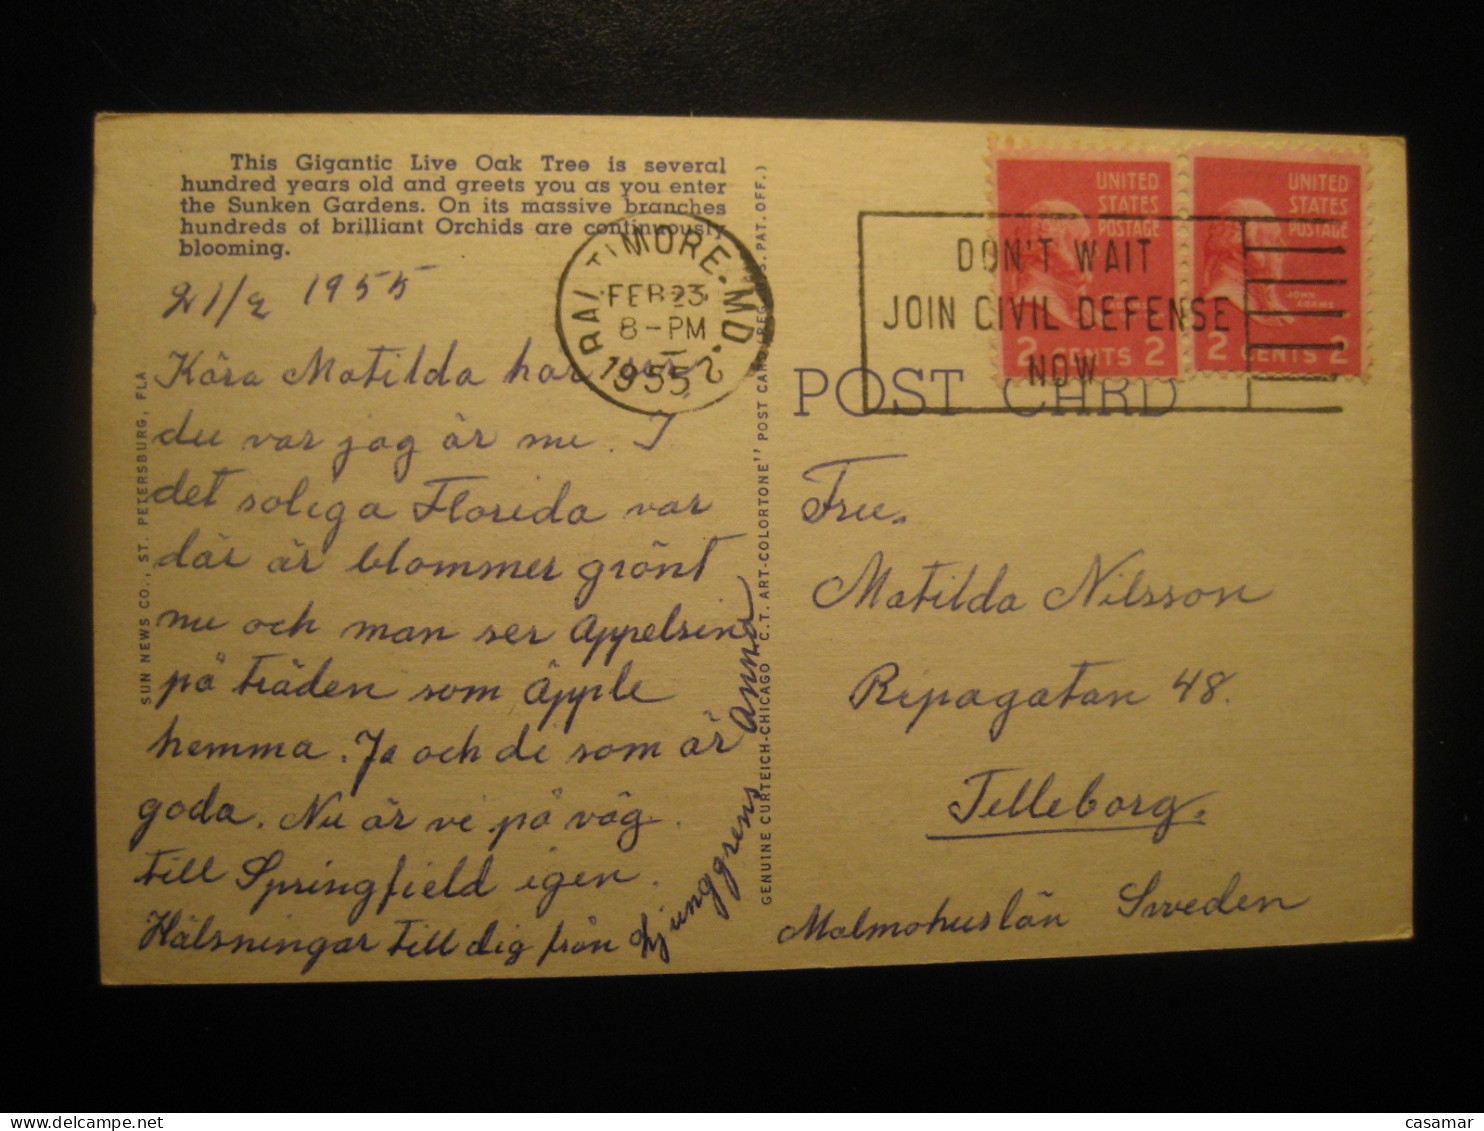 This Gigantic Live Oak Tree is several
hundred years old and greets you as you enter
the Sunken Gardens. On its massive branches
hundreds of brilliant Orchids are continuously
blooming.
21/2 1955
Kära Matilda har
du var jag är nu. I
det soliga Florida var
där är blommer grönt
nu och man ser Appelsina
på träden som Äpple
hemma. Ja och de som är
goda. Nu är vi på väg
till Springfield igen.
Hälsningar till dig från Ljunggrens Anna
SUN NEWS CO., ST. PETERSBURG, FLA.
GENUINE CURTEICH-CHICAGO "C.T. ART-COLORTONE" POST CARD (REG. U.S. PAT. OFF.)
BALTIMORE, MD. 2
FEB 23
8-PM
1955
DON'T WAIT
JOIN CIVIL DEFENSE
NOW
UNITED
STATES
POSTAGE
JOHN
ADAMS
2 CENTS 2
UNITED
STATES
POSTAGE
JOHN
ADAMS
2 CENTS 2
POST CARD
Fru.
Matilda Nilsson
Repagatan 48.
Trelleborg.
Malmohuslän Sweden
delcampe.net
casamar